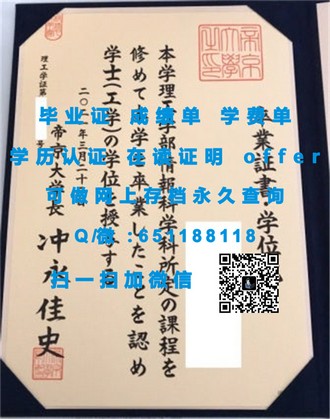 毕业证 成绩单 学费单
学历认证 在读证明 offer
可做网上存档永久查询
Q/微:651188118
扫一扫加微信
卒業証書・学位
本学理工学部情報科学科所定の課程を
修めて本学を卒業したことを認め
学士(工学)の学位を授与する
二〇 年三月二十
帝京大学長 冲永佳史
理工学証第
号